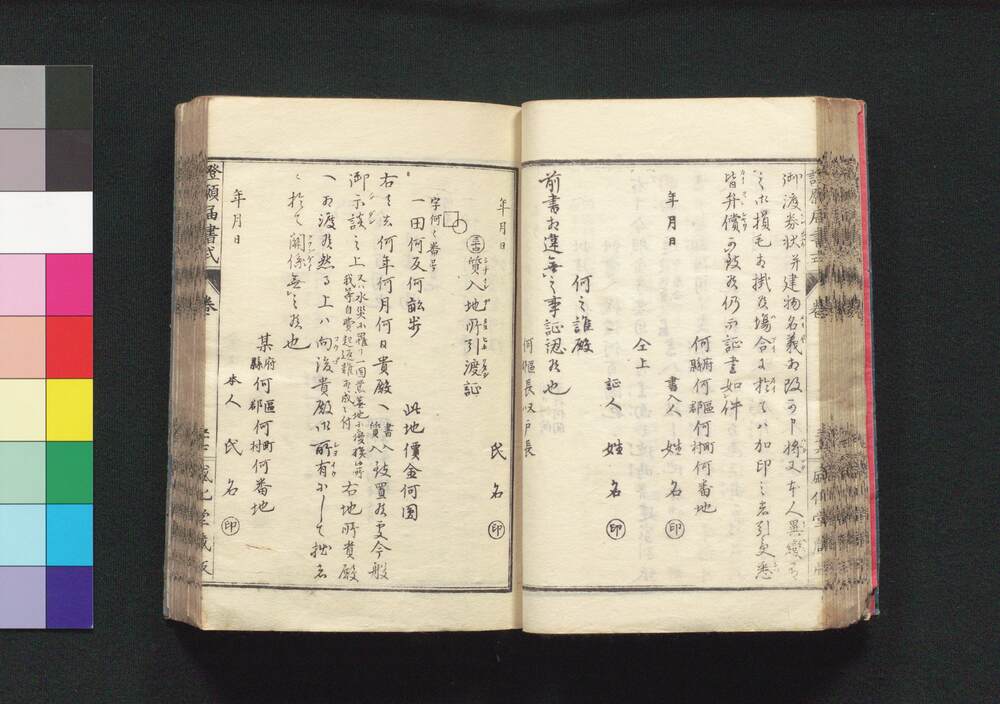 御渡券状并建物名義相改可申將又本人異變有
之亦損毛相掛候場合ニ於テハ加印之者引受悉
皆弁償可致候仍而証書如件
何府縣何區郡何町村何番地
年月日 書入人 姓名 印
仝上
証人 姓名 印
何之誰殿
前書相違無之事証認候也
何區長又戸長
年月日 氏名 印
書質入地所引渡証
字何々番号
一田何反何畝歩 此地價金何圓
右ハ去何年何月何日貴殿ヘ書入質入致置候処今般
御示談之上 右地所貴殿
ヘ相渡候然ル上ハ向後貴殿御所有ニシテ拙者
ニ於テ関係無之候也
某府縣何區郡何町村何番地
年月日 本人 氏名 印
證願届書式 卷